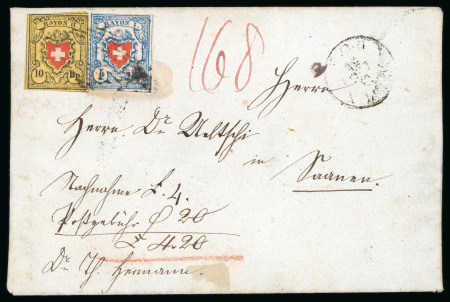 RAYON
10 Rp
RAYON
168
Herrn
Herrn Dr. Ueltschi
in
Saanen.
Nachnahme L. 4.
Postgebühr ß 20
4.20
Dr. Th. Hermann.